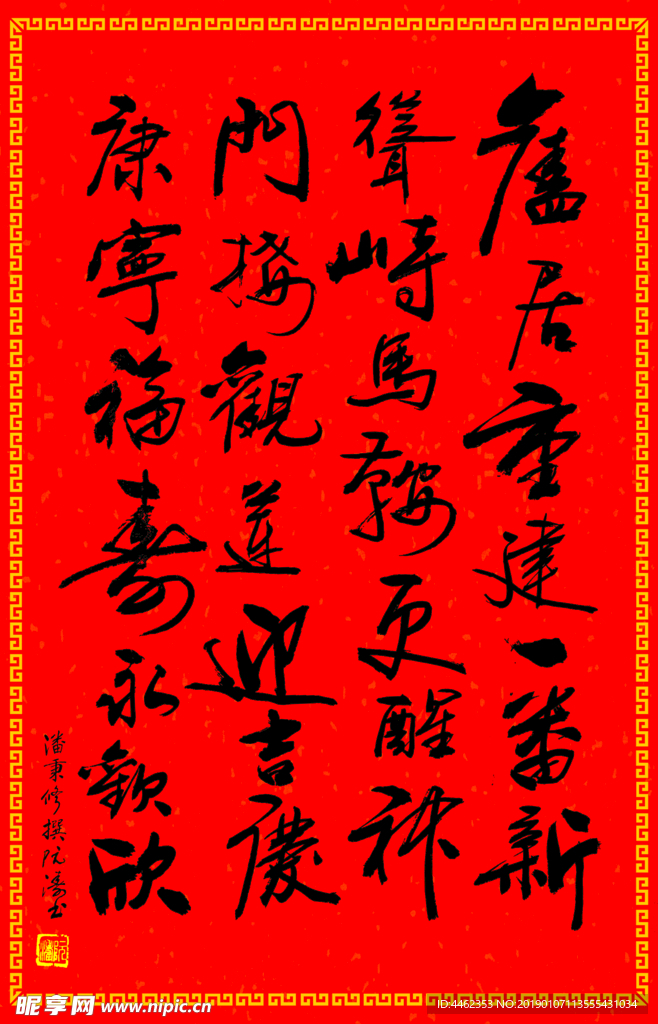 廬居重建一番新
聳峙馬鞍更醒神
門接觀蓮迎吉慶
康寧福壽永歡欣
潘秉修撰阮濤书
昵享网 www.nipic.cn
ID:4462353 NO:20190107113555431034